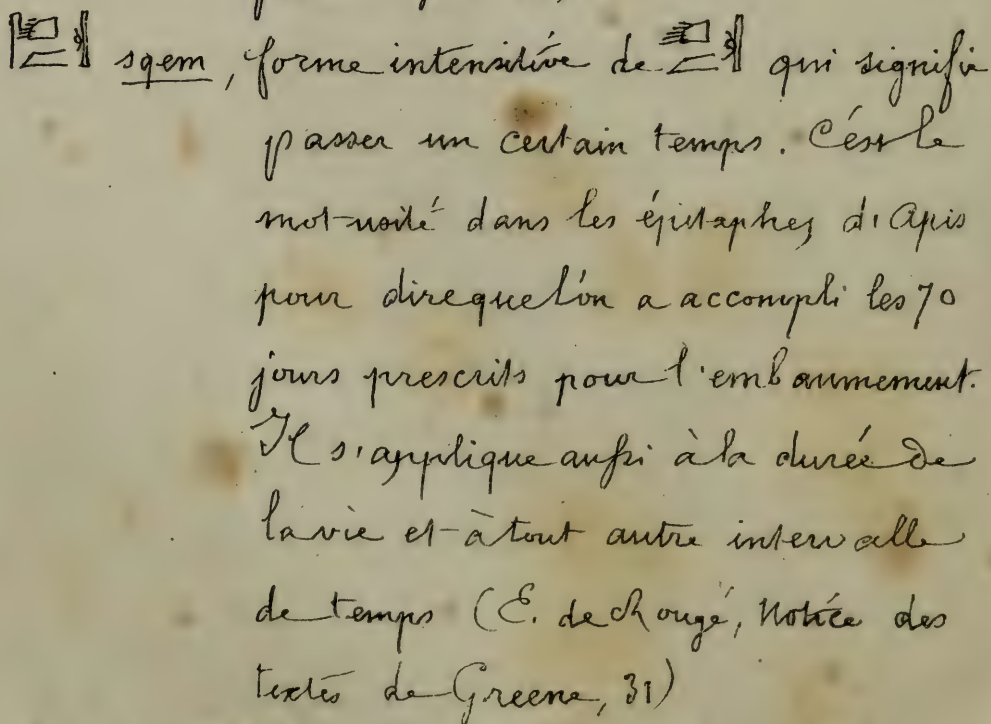 sqem, forme intensitive de qui signifie
passer un certain temps. C'est le
mot usité dans les épitaphes d'Apis
pour dire que l'on a accompli les 70
jours prescrits pour l'embaumement.
Il s'applique aussi à la durée de
la vie et à tout autre intervalle
de temps (E. de Rougé, Notice des
textes de Greene, 31)